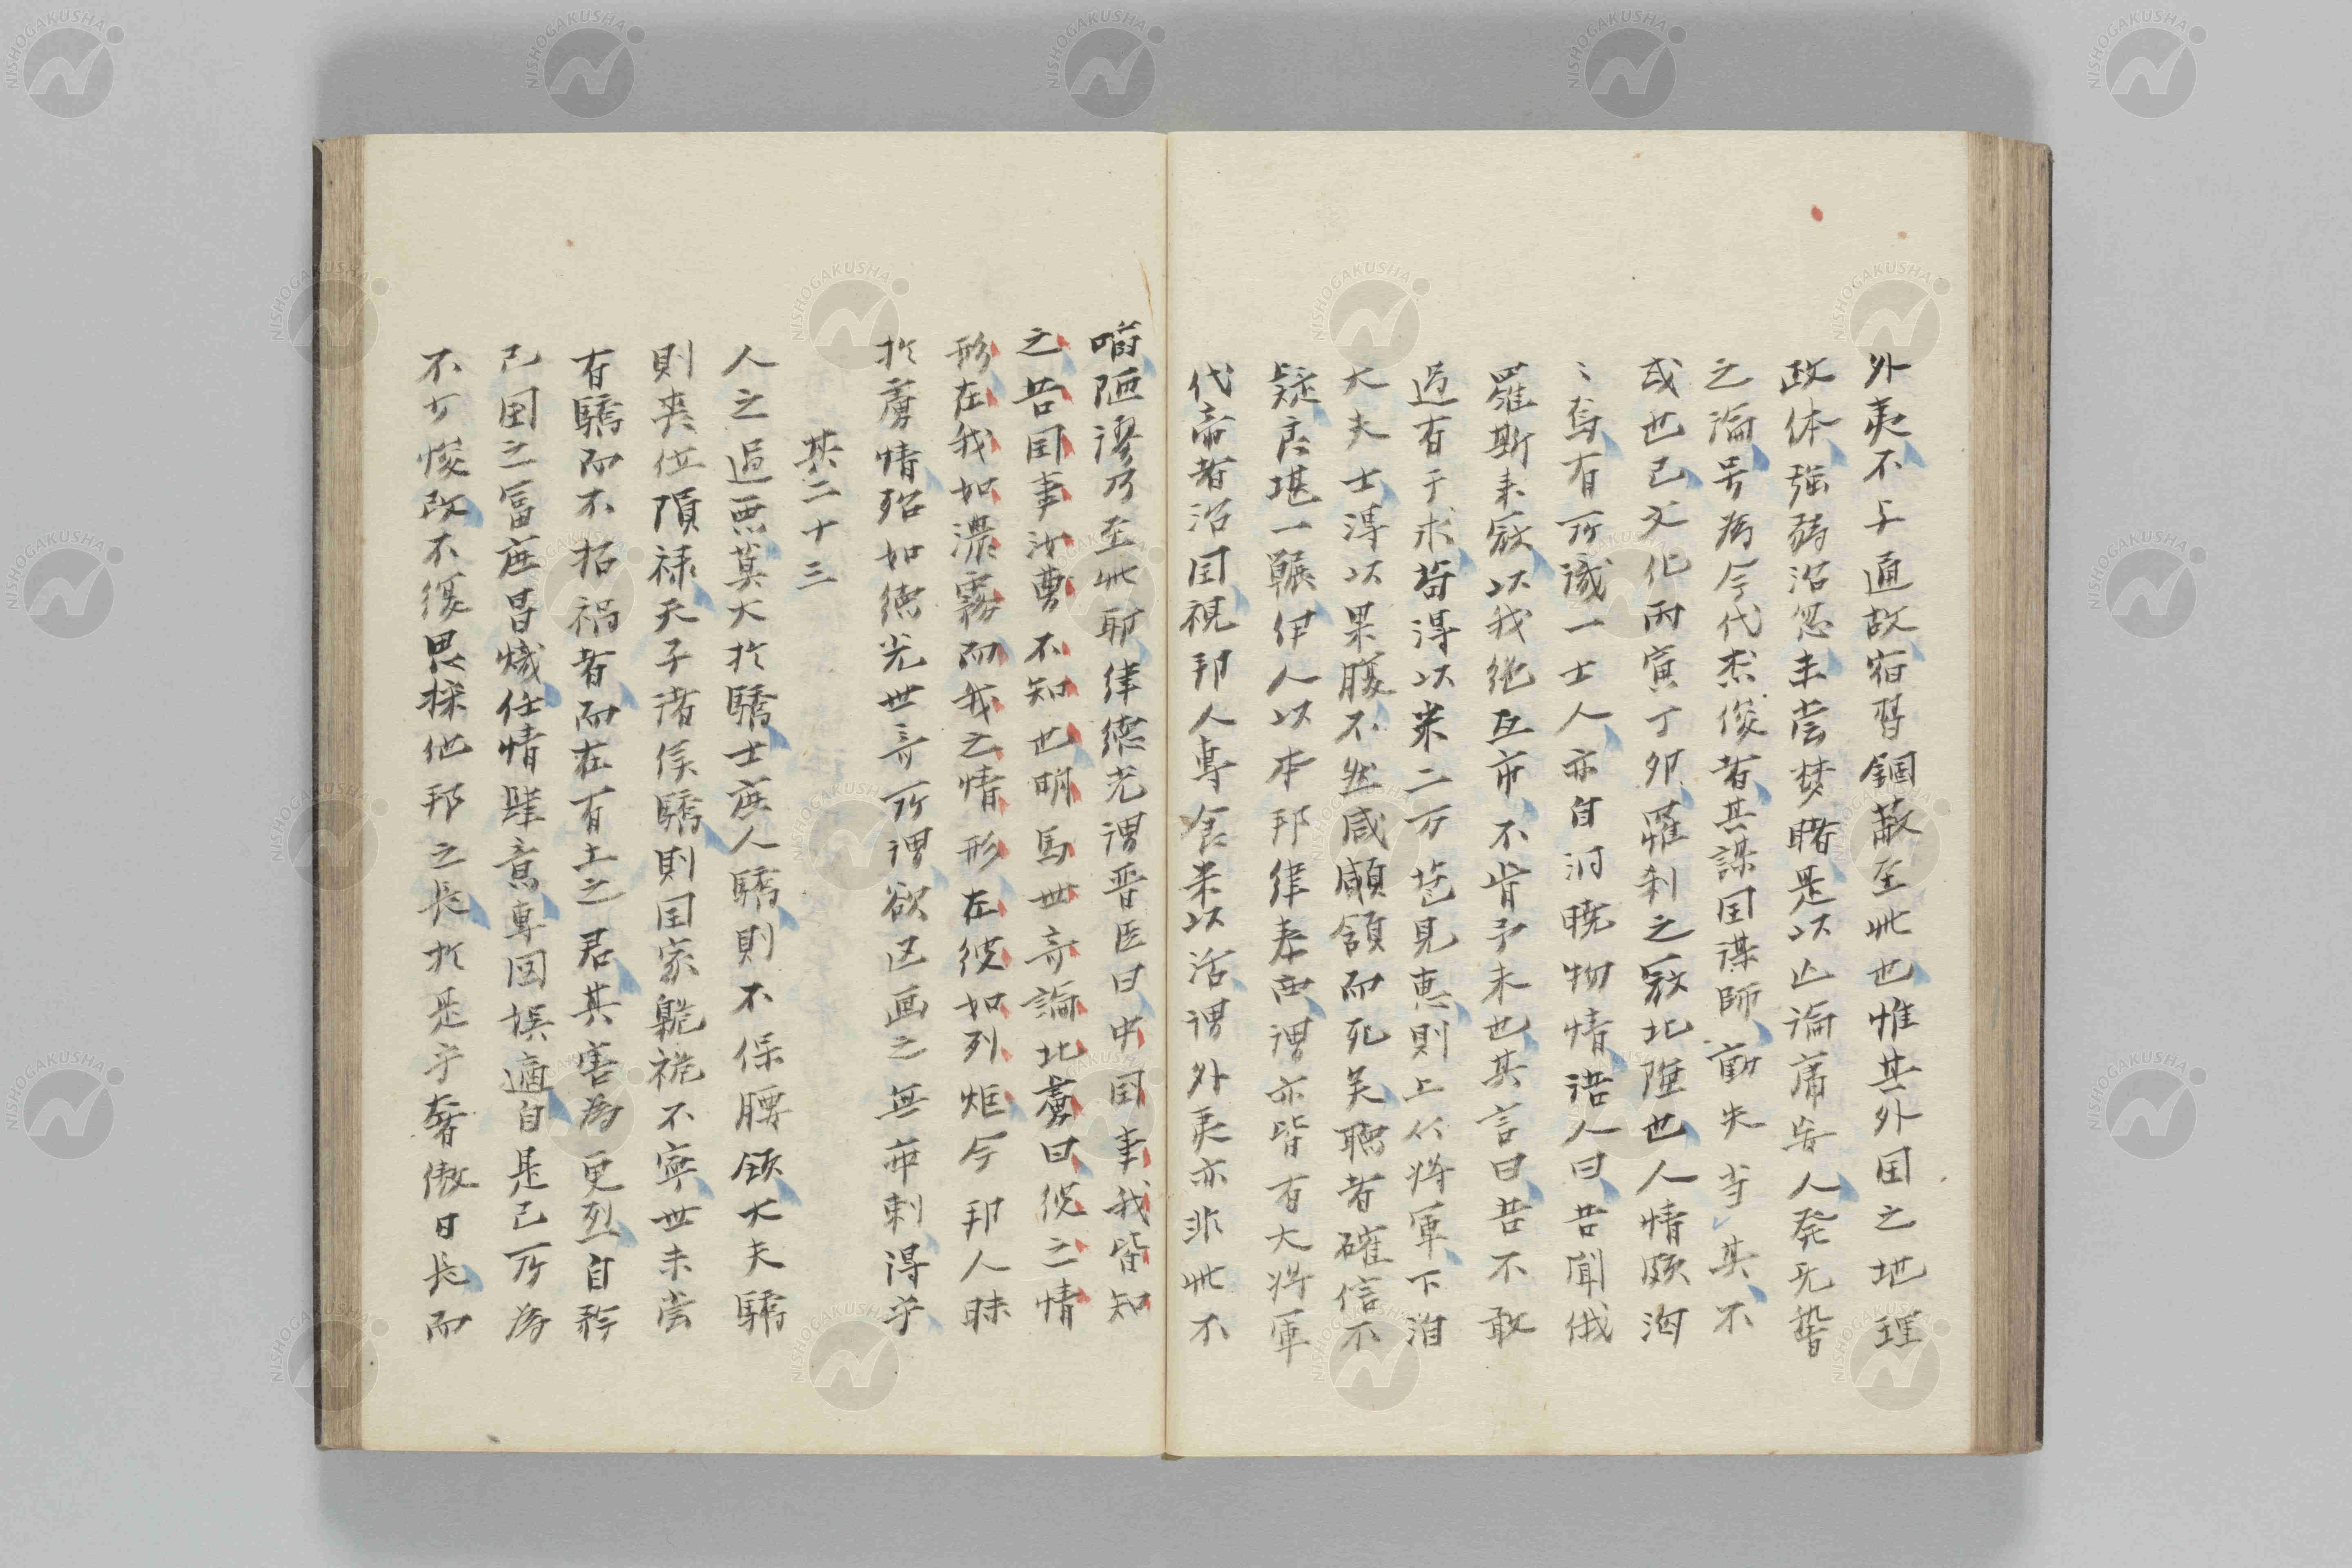 外夷不与通故宿習錮蔽至此也惟其外国之地理
政体强弱治忽未尝梦睹是以凶論庸妄人発无稽
之論号為今代杰俊者其謀国谋師動失当其不
或也已文化丙寅丁卯羅刹之寇北陲也人情頗洶
〻焉有所識一士人亦自泀暁物情語人曰昔聞俄
羅斯来寇以我絶互市不肯予未也其言曰昔不敢
过有于求苟得以米二万苞見惠則上从将軍下泊
大夫士得以果腹不然咸顑頷而死矣聴者確信不
疑良堪一囅伊人以本邦律泰西謂亦皆有大将軍
代帝者治国視邦人専食米以活謂外夷亦非此不
啗陋謬乃至此耶律德光謂晋臣曰中国事我皆知
之吾国事汝曹不知也明馬世奇論北虏曰彼之情
形在我如濃霧而我之情形在彼如列炬今邦人昧
於虏情殆如德光世奇所謂欲区画之無弗剌得乎
其二十三
人之過悪莫大於驕士庶人驕則不保腰領大夫驕
則喪位隕禄天子诸侯驕則国家臲卼不寧世未尝
有驕而不招禍者而在有土之君其害為更烈自矜
己国之富庶昌熾任情肆意専図娯適自是己所為
不少悛改不復思採他邦之長於是乎奢傲日長而